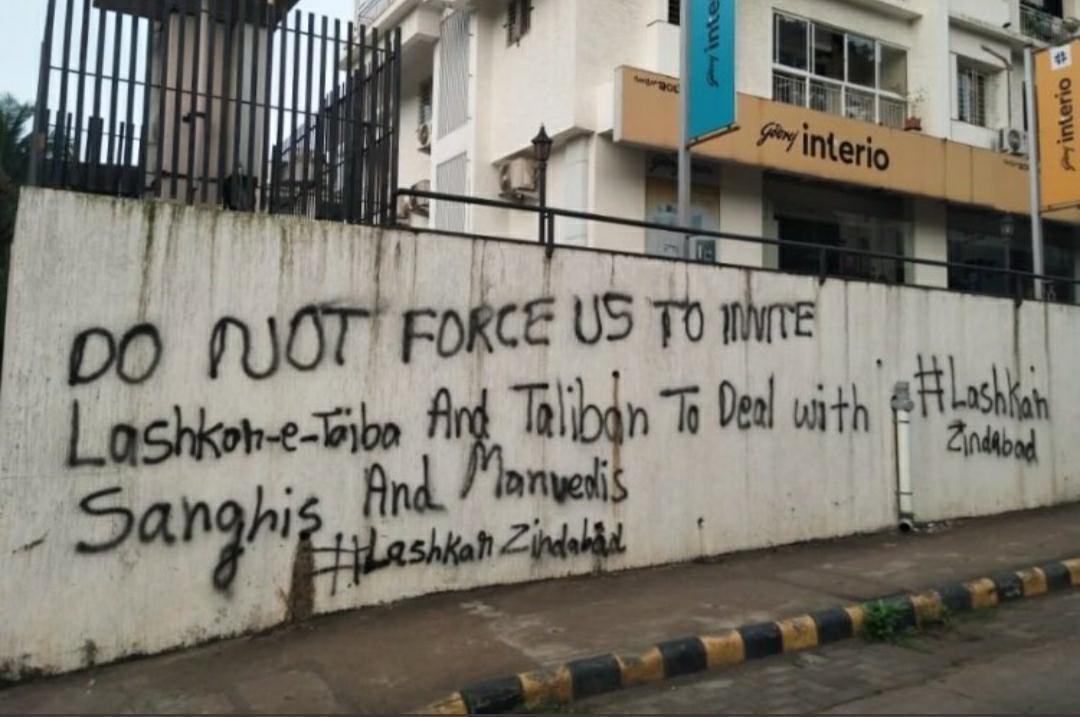 Godrej inte
Godrej interio
Godrej interio
DO NOT FORCE US TO INVITE
Lashkar-e-Taiba And Taliban To Deal with
Sanghis And Manvedis
#Lashkar Zindabad
#Lashkar
Zindabad